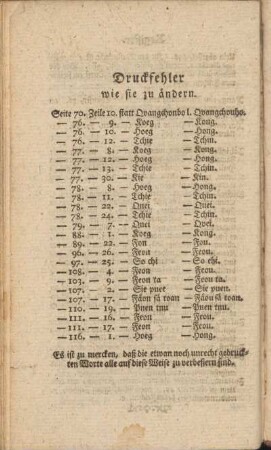 Druckfehler
wie sie zu ändern.
Seite 70. Zeile 10. statt Qvangchonbo l. Qvangchouho.
— 76. — 9. — Koeg — Kong.
— 76. — 10. — Hoeg — Hong.
— 76. — 12. — Tchie — Tchin.
— 77. — 8. — Koeg — Kong.
— 77. — 12. — Hoeg — Hong.
— 77. — 13. — Tchie — Tchin.
— 77. — 30. — Kie — Kin.
— 78. — 8. — Hoeg — Hong.
— 78. — 11. — Tchie — Tchin.
— 78. — 22. — Quei — Quel.
— 78. — 24. — Tchie — Tchin.
— 79. — 7. — Quei — Qvel.
— 88. — 1. — Koeg — Kong.
— 89. — 22. — Fon — Fou.
— 96. — 26. — Fron — Feon.
— 97. — 25. — So cht — So chi.
— 108. — 4. — Feon — Feou.
— 103. — 9. — Feon ta — Feou ta.
— 107. — 2. — Sie puet — Sie puen.
— 107. — 17. — Fáon sá toan — Fáou sá toan.
— 110. — 19. — Pnen tnu — Puen tnu.
— 111. — 16. — Feon — Feou.
— 111. — 17. — Feon — Feou.
— 116. — 1. — Hoeg — Hong.
Es ist zu mercken, daß die etwan noch unrecht gedruck-
ten Worte alle auf diese Weise zu verbessern sind.